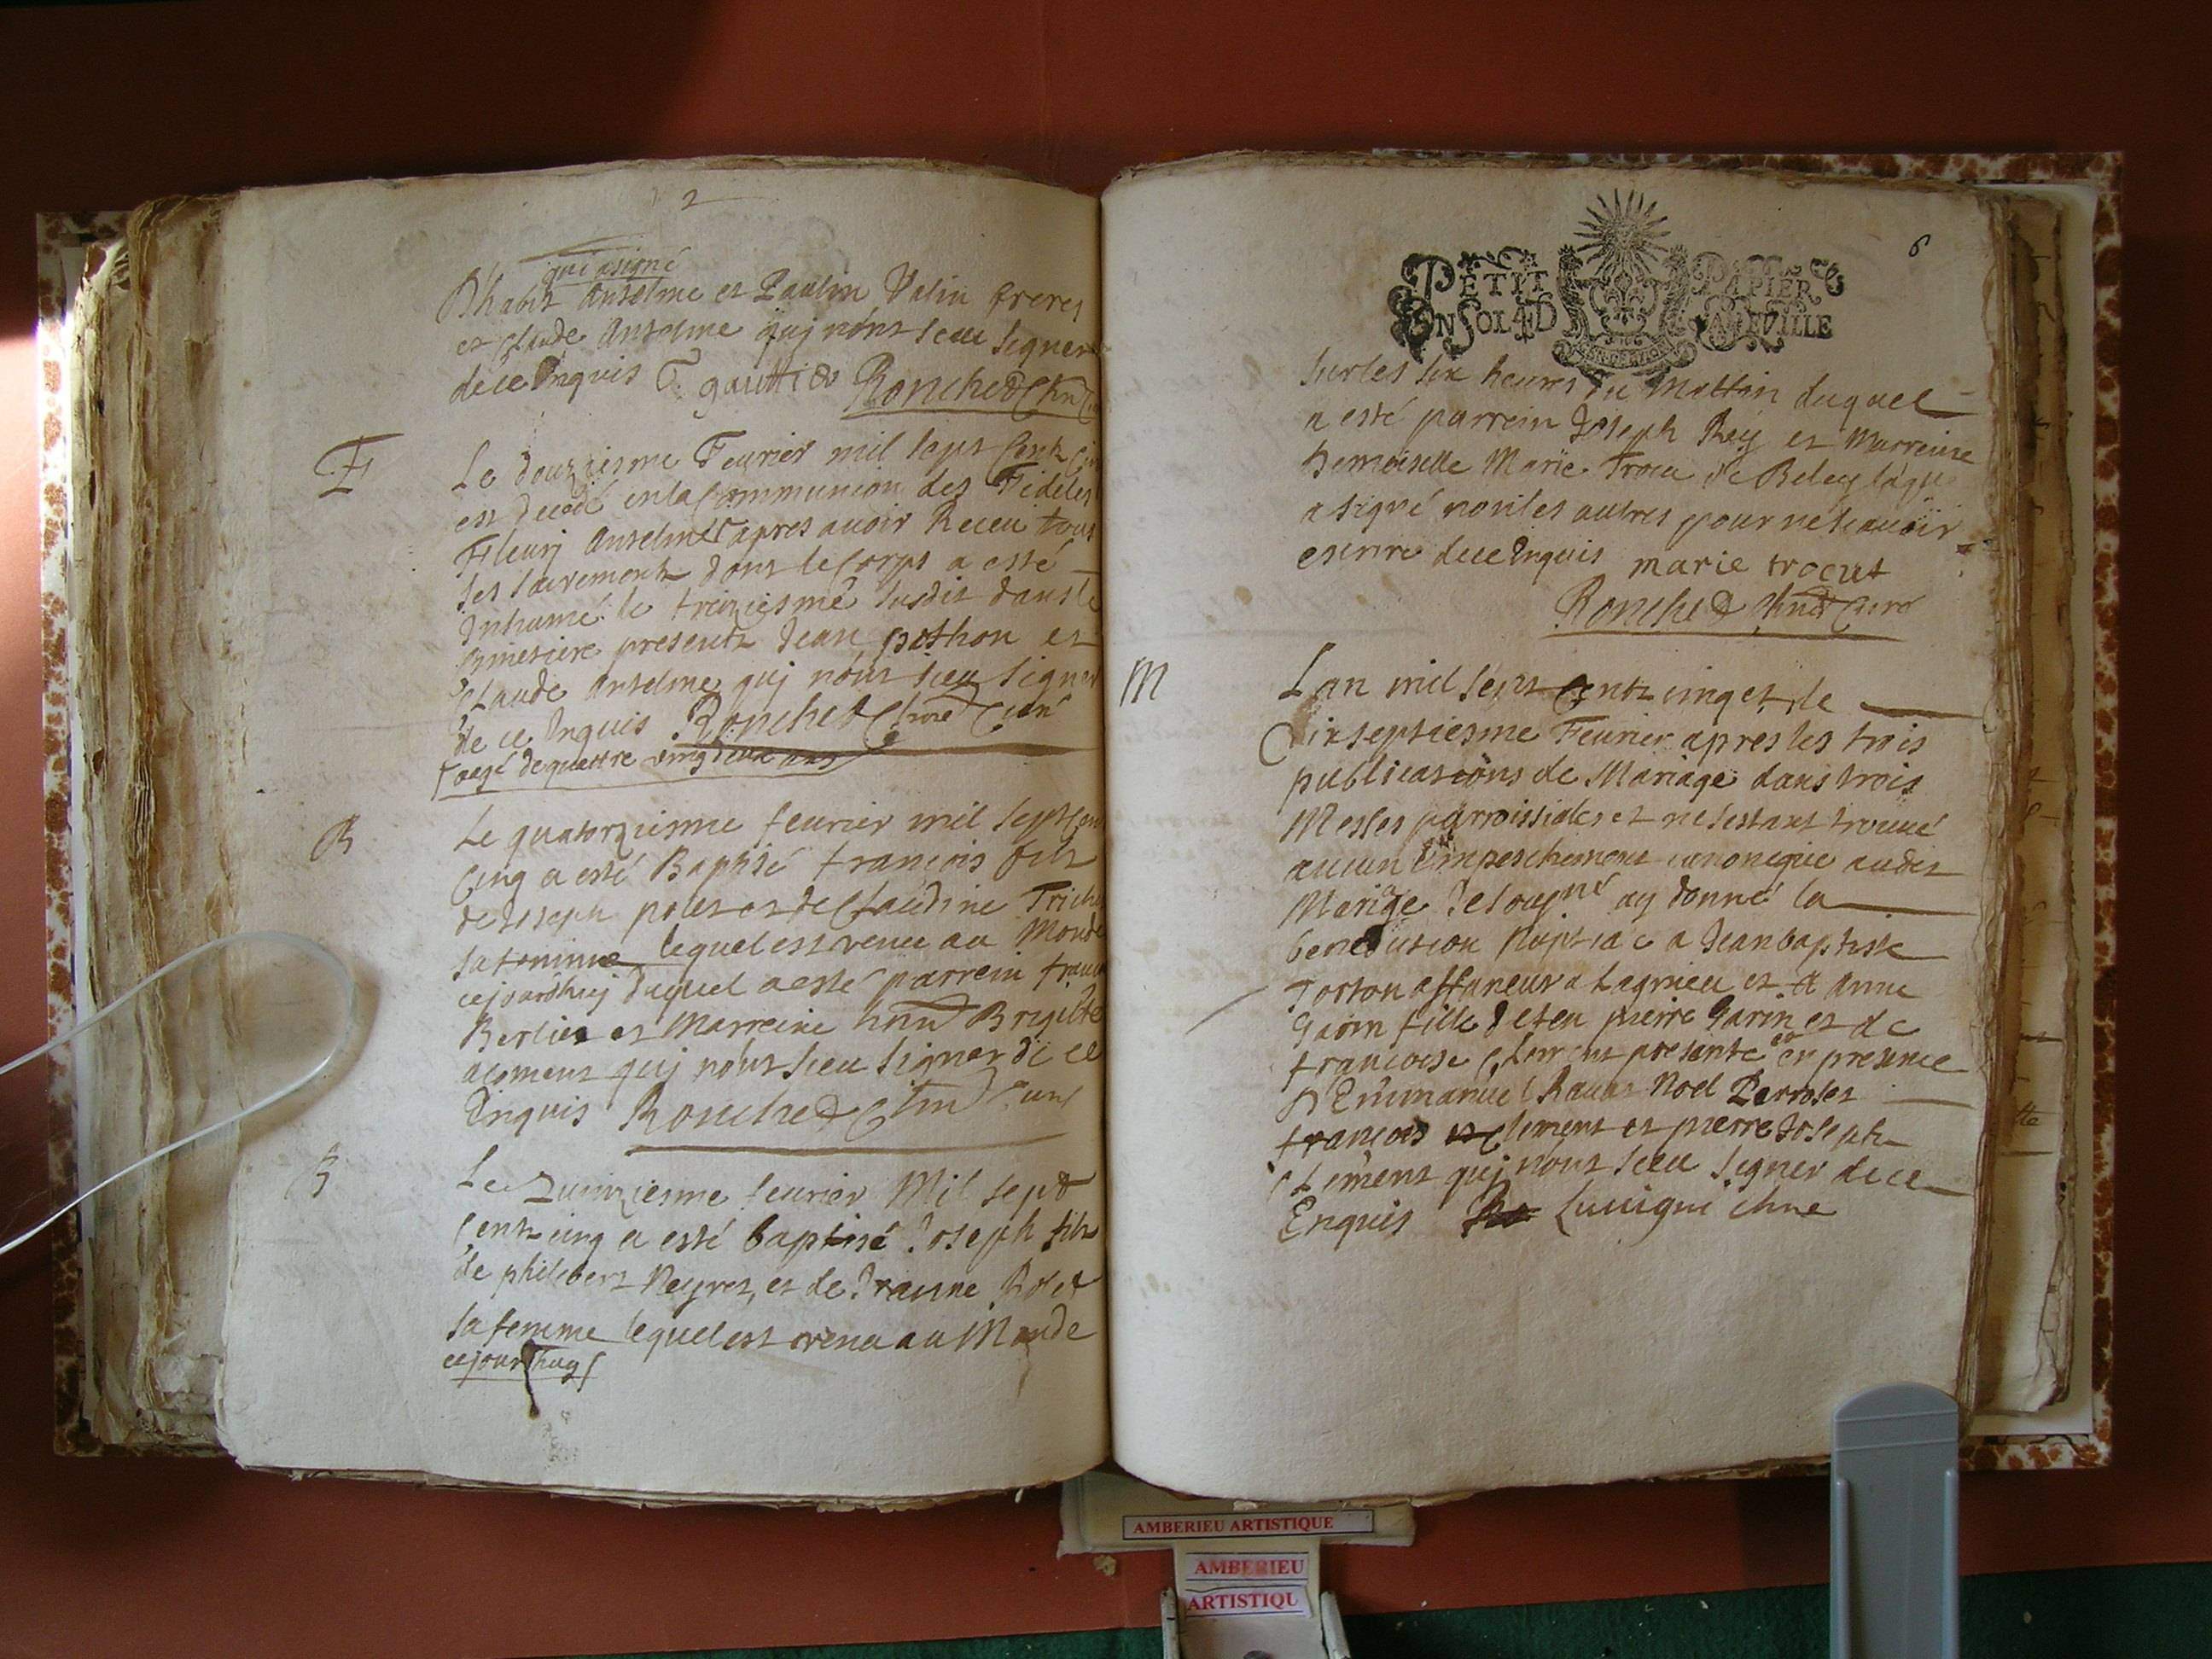 2
qui a signé
Anselme et Paulin Valin freres
et Claude Anselme quj nónt sceu signer
de ce Enquis F. gauttier Ronchet
F
Le douziesme Feurier mil sept Cent
est decedé en la Communion des Fideles
Fleurj Anselme apres auoir Receu tous
ses sacrements dont le Corps a esté
Inhumé le treiziesme susdit dans le
Cymetiere presents Jean pothon et
Claude Anselme quj nónt sceu signer
de ce Enquis Ronchet Curé
aagé de quattre vingt deux ans
B
Le quatorziesme feurier mil sept
Cinq a esté Baptisé francois fils
de Joseph et de Claudine
sa femme lequel est venu au Monde
cejourdhuy duquel a esté parrein
Berlier et Marreine Brigitte
quj nónt sceu signer de ce
Enquis Ronchet
B
Le quinziesme feurier Mil sept
Cent cinq a esté baptisé Joseph fils
de philibert Neyret, et de Jeanne
sa femme lequel est venu au Monde
cejourdhuy
6
PETIT PAPIER
UN SOL 4 D LA FEUILLE
sur les six heures du Mattin duquel
a esté parrein Joseph Rey et Marreine
Demoiselle Marie Trocu de Beley
a signé non les autres pour ne scauoir
escrire de ce Enquis marie trocut
Ronchet Curé
M
Lan mil sept Cents cinq et le
dixseptiesme Feurier apres les trois
publications de Mariage dans trois
Messes parroissiales et ne sestant trouué
aucun Empeschement canonique audit
Mariage Je soupné ay donné la
benediction Nuptiale a Jean baptiste
affaneur a Lagnieu et a Anne
Garin fille de feu pierre Garin et de
francoise presente et en presence
D Emmanuel Rauat Noel Perroset
francois Clement et pierre Joseph
Clement quj nónt sceu signer de ce
Enquis